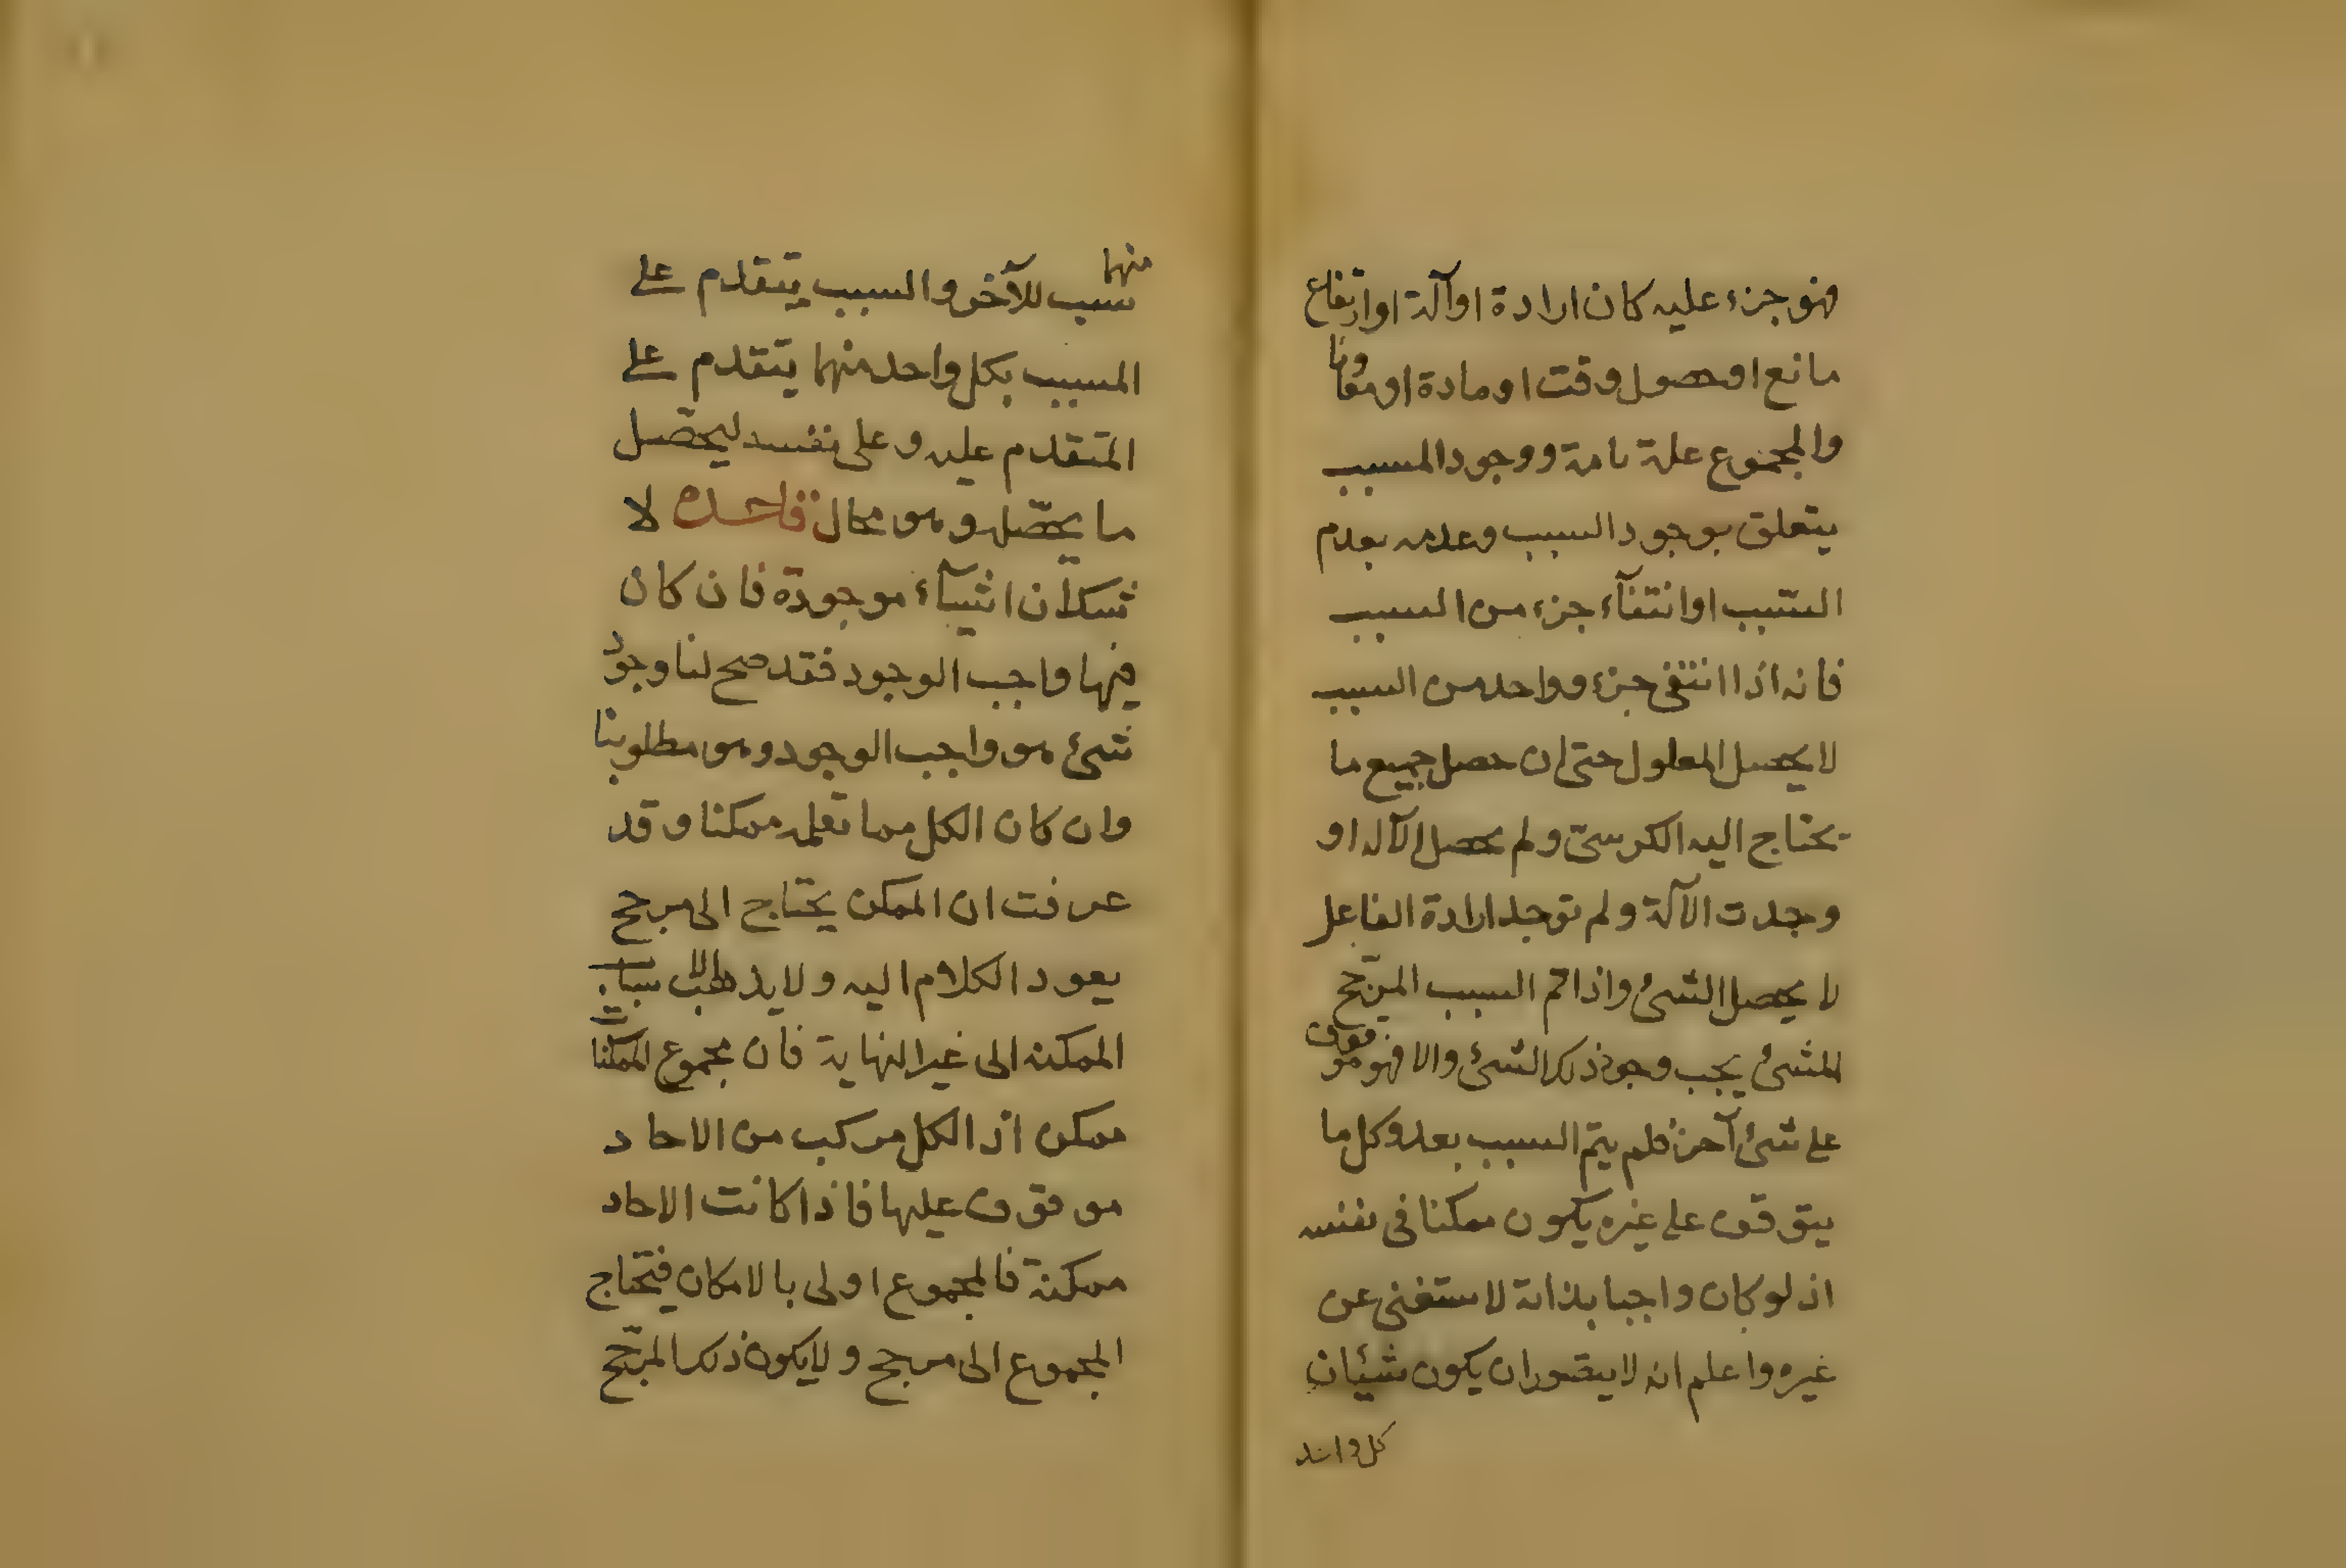 فهو جزء عليه كان ارادة اوآلة اوارتفاع
مانع اوحصول وقت اومادة اومعاونا
والمجموع علة تامة ووجود المسبب
يتعلق بوجود السبب وعدمه بعدم
السبب اوانتفآء جزء من السبب
فانه اذا انتفى جزء وواحد من السبب
لا يحصل المعلول حتى ان حصل جميع ما
يحتاج اليه الكرسى ولم يحصل الآله او
وجدت الآلة ولم توجد ارادة الفاعل
لا يحصل الشئ واذا تم السبب المرجح
للشئ يجب وجود ذلك الشئ والا فهو موقوف
على شئ آخر فلم يتم السبب بعد وكل ما
يتوقف على غيره يكون ممكنا فى نفسه
اذ لو كان واجبا بذاته لاستغنى عن
غيره واعلم انه لا يتصور ان يكون شيئان
كل واحد
منهما
سبب للآخر والسبب يتقدم على
المسبب بكل واحد منهما يتقدم على
المتقدم عليه وعلى نفسه ليحصل
ما يحصله وهو محال قاعده لا
شك ان اشيآء موجودة فان كان
فيها واجب الوجود فقد صح لنا وجود
شئ هو واجب الوجود وهو مطلوبنا
وان كان الكل مما نعلمه ممكنا وقد
عرفت ان الممكن يحتاج الى مرجح
يعود الكلام اليه ولا يذهب
الممكنه الى غير النهاية فان مجموع الممكنات
ممكن اذ الكل مركب من الاحاد
موقوف عليها فاذا كانت الاحاد
ممكنة فالمجموع اولى بالامكان فيحتاج
المجموع الى مرجح ولا يكون ذلك المرجح